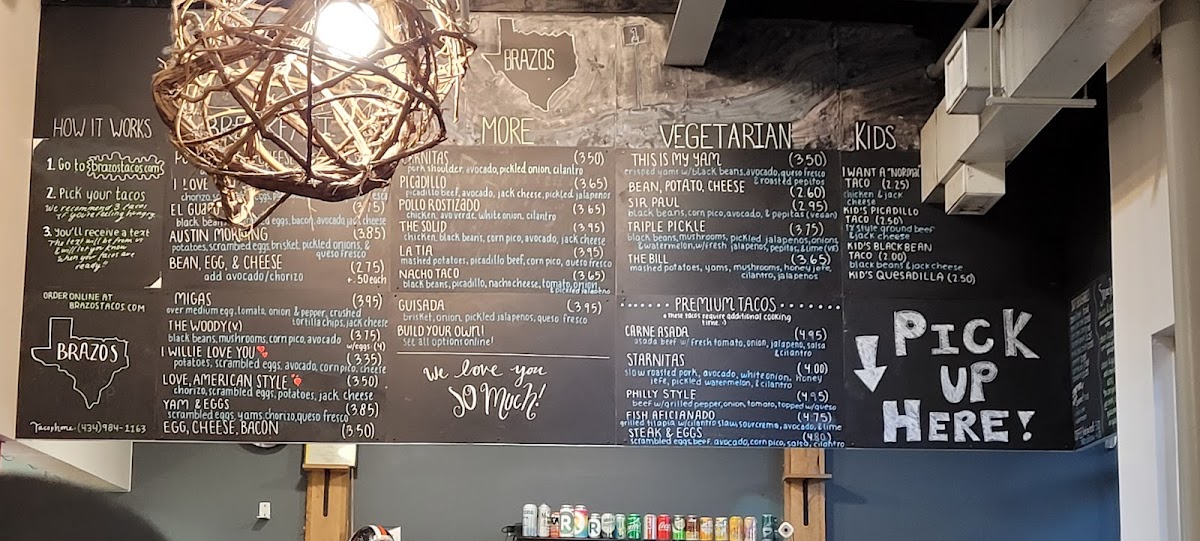 BRAZOS
HOW IT WORKS
1. Go to brazostacos.com
2. Pick your tacos
We recommend 3 tacos
if you're feeling hungry.
3. You'll receive a text
The text will be from us
& will let you know
when your tacos are
ready
ORDER ONLINE AT
BRAZOSTACOS.COM
BRAZOS
Tacophone (434)984-1163
I LOVE
EL
scrambled eggs, bacon, avocado, jack cheese
AUSTIN MORNING (3.85)
potatoes, scrambled eggs, brisket, pickled onions, &
queso fresco
BEAN, EGG, & CHEESE (2.75)
add avocado/chorizo +.50 each
MIGAS (3.95)
over medium egg, tomato, onion & pepper, crushed
tortilla chips, jack cheese
THE WOODY (V) (3.75)
black beans, mushrooms, corn pico, avocado w/eggs (4)
I WILLIE LOVE YOU (3.35)
potatoes, scrambled eggs, avocado, corn pico, cheese
LOVE, AMERICAN STYLE (3.50)
chorizo, scrambled eggs, potatoes, jack cheese
YAM & EGGS (3.85)
scrambled eggs, yams, chorizo, queso fresco
EGG, CHEESE, BACON (3.50)
MORE
CARNITAS (3.50)
pork shoulder, avocado, pickled onion, cilantro
PICADILLO (3.65)
picadillo beef, avocado, jack cheese, pickled jalapenos
POLLO ROSTIZADO (3.65)
chicken, avo verde, white onion, cilantro
THE SOLID (3.95)
chicken, black beans, corn pico, avocado, jack cheese
LA TIA (3.95)
mashed potatoes, picadillo beef, corn pico, queso fresco
NACHO TACO (3.65)
black beans, picadillo, nacho cheese, tomato, onion,
& pickled jalapeno
GUISADA (3.95)
brisket, onion, pickled jalapenos, queso fresco
BUILD YOUR OWN!
see all options online!
We love you
SO MUCH!
VEGETARIAN
THIS IS MY YAM (3.50)
crisped yams w/black beans, avocado, queso fresco
& roasted pepitos
BEAN, POTATO, CHEESE (2.60)
SIR PAUL (2.95)
black beans, corn pico, avocado, & pepitas (vegan)
TRIPLE PICKLE (3.75)
black beans, mushrooms, pickled jalapenos, onions
& watermelon, w/fresh jalapenos, pepitas, & lime (VG)
THE BILL (3.65)
mashed potatoes, yams, mushrooms, honey jefe,
cilantro, jalapenos
PREMIUM TACOS
* these tacos require additional cooking
time. :)
CARNE ASADA (4.95)
asada beef w/ fresh tomato, onion, jalapeno, salsa
& cilantro
STARNITAS (4.00)
slow roasted pork, avocado, white onion, honey
jefe, pickled watermelon, & cilantro
PHILLY STYLE (4.95)
beef w/grilled pepper, onion, tomato, topped w/queso
FISH AFICIANADO (4.75)
grilled tilapia w/cilantro slaw, sour crema, avocado, & lime
STEAK & EGGS (4.80)
scrambled eggs, beef, avocado, corn pico, salsa, cilantro
KIDS
I WANT A "NORMAL"
TACO (2.25)
chicken & jack
cheese
KID'S PICADILLO
TACO (2.50)
TX style ground beef
& jack cheese
KID'S BLACK BEAN
TACO (2.00)
black beans & jack cheese
KID'S QUESADILLA (2.50)
PICK
UP
HERE!